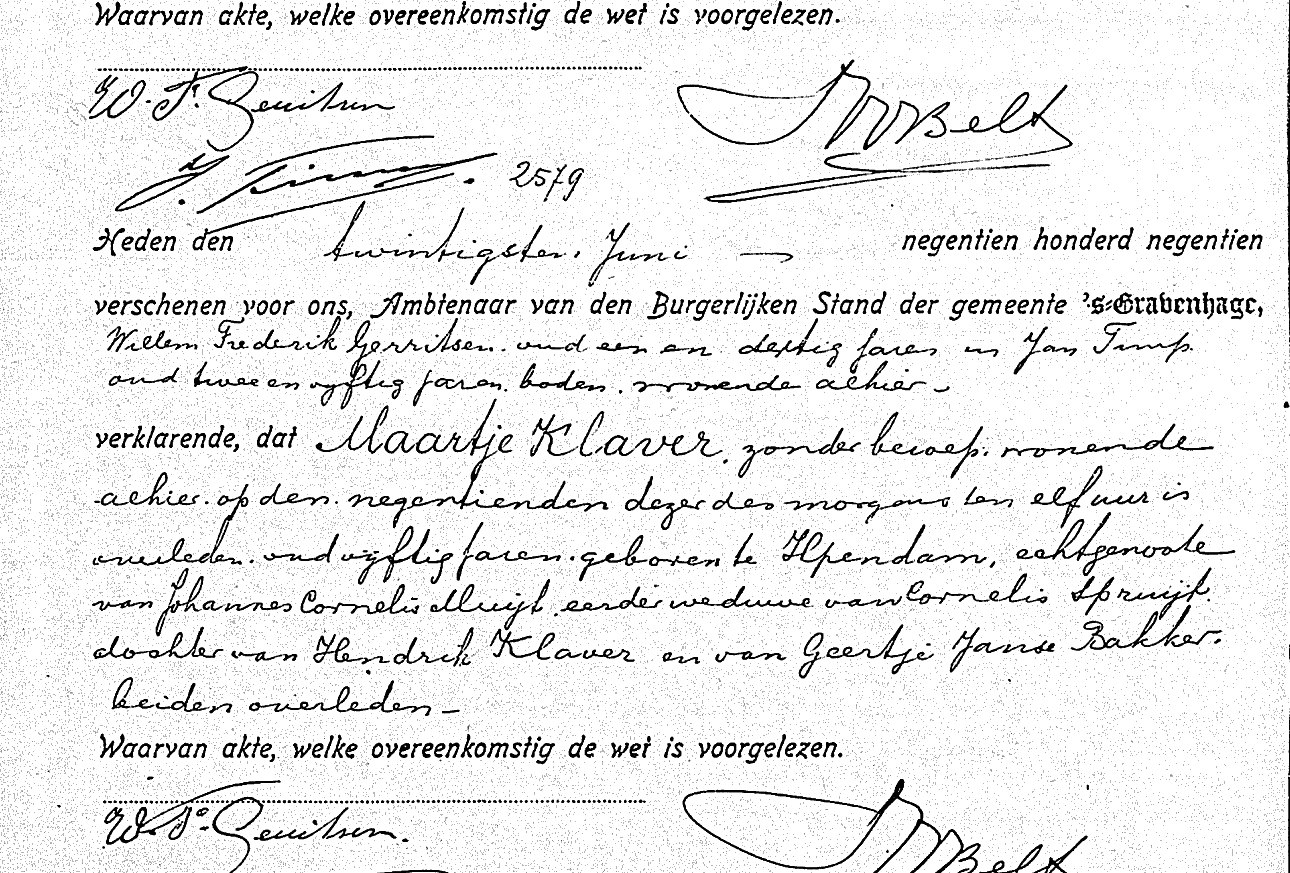 Waarvan akte, welke overeenkomstig de wet is voorgelezen.
W. F. Gerritsen
J. Timp. 2579
Heden den twintigsten Juni — negentien honderd negentien
verschenen voor ons, Ambtenaar van den Burgerlijken Stand der gemeente 's-Gravenhage,
Willem Frederik Gerritsen. oud een en dertig jaren en Jan Timp.
oud twee en vyftig jaren. boden. wonende alhier —
verklarende, dat Maartje Klaver. zonder beroep. wonende
alhier. op den negentienden dezer des morgens ten elf uur is
overleden. oud vyftig jaren. geboren te Ilpendam, echtgenoote
van Johannes Cornelis Muijt. eerder weduwe van Cornelis Spruijt.
dochter van Hendrik Klaver en van Geertje Janse Bakker.
beiden overleden —
Waarvan akte, welke overeenkomstig de wet is voorgelezen.
W. F. Gerritsen.